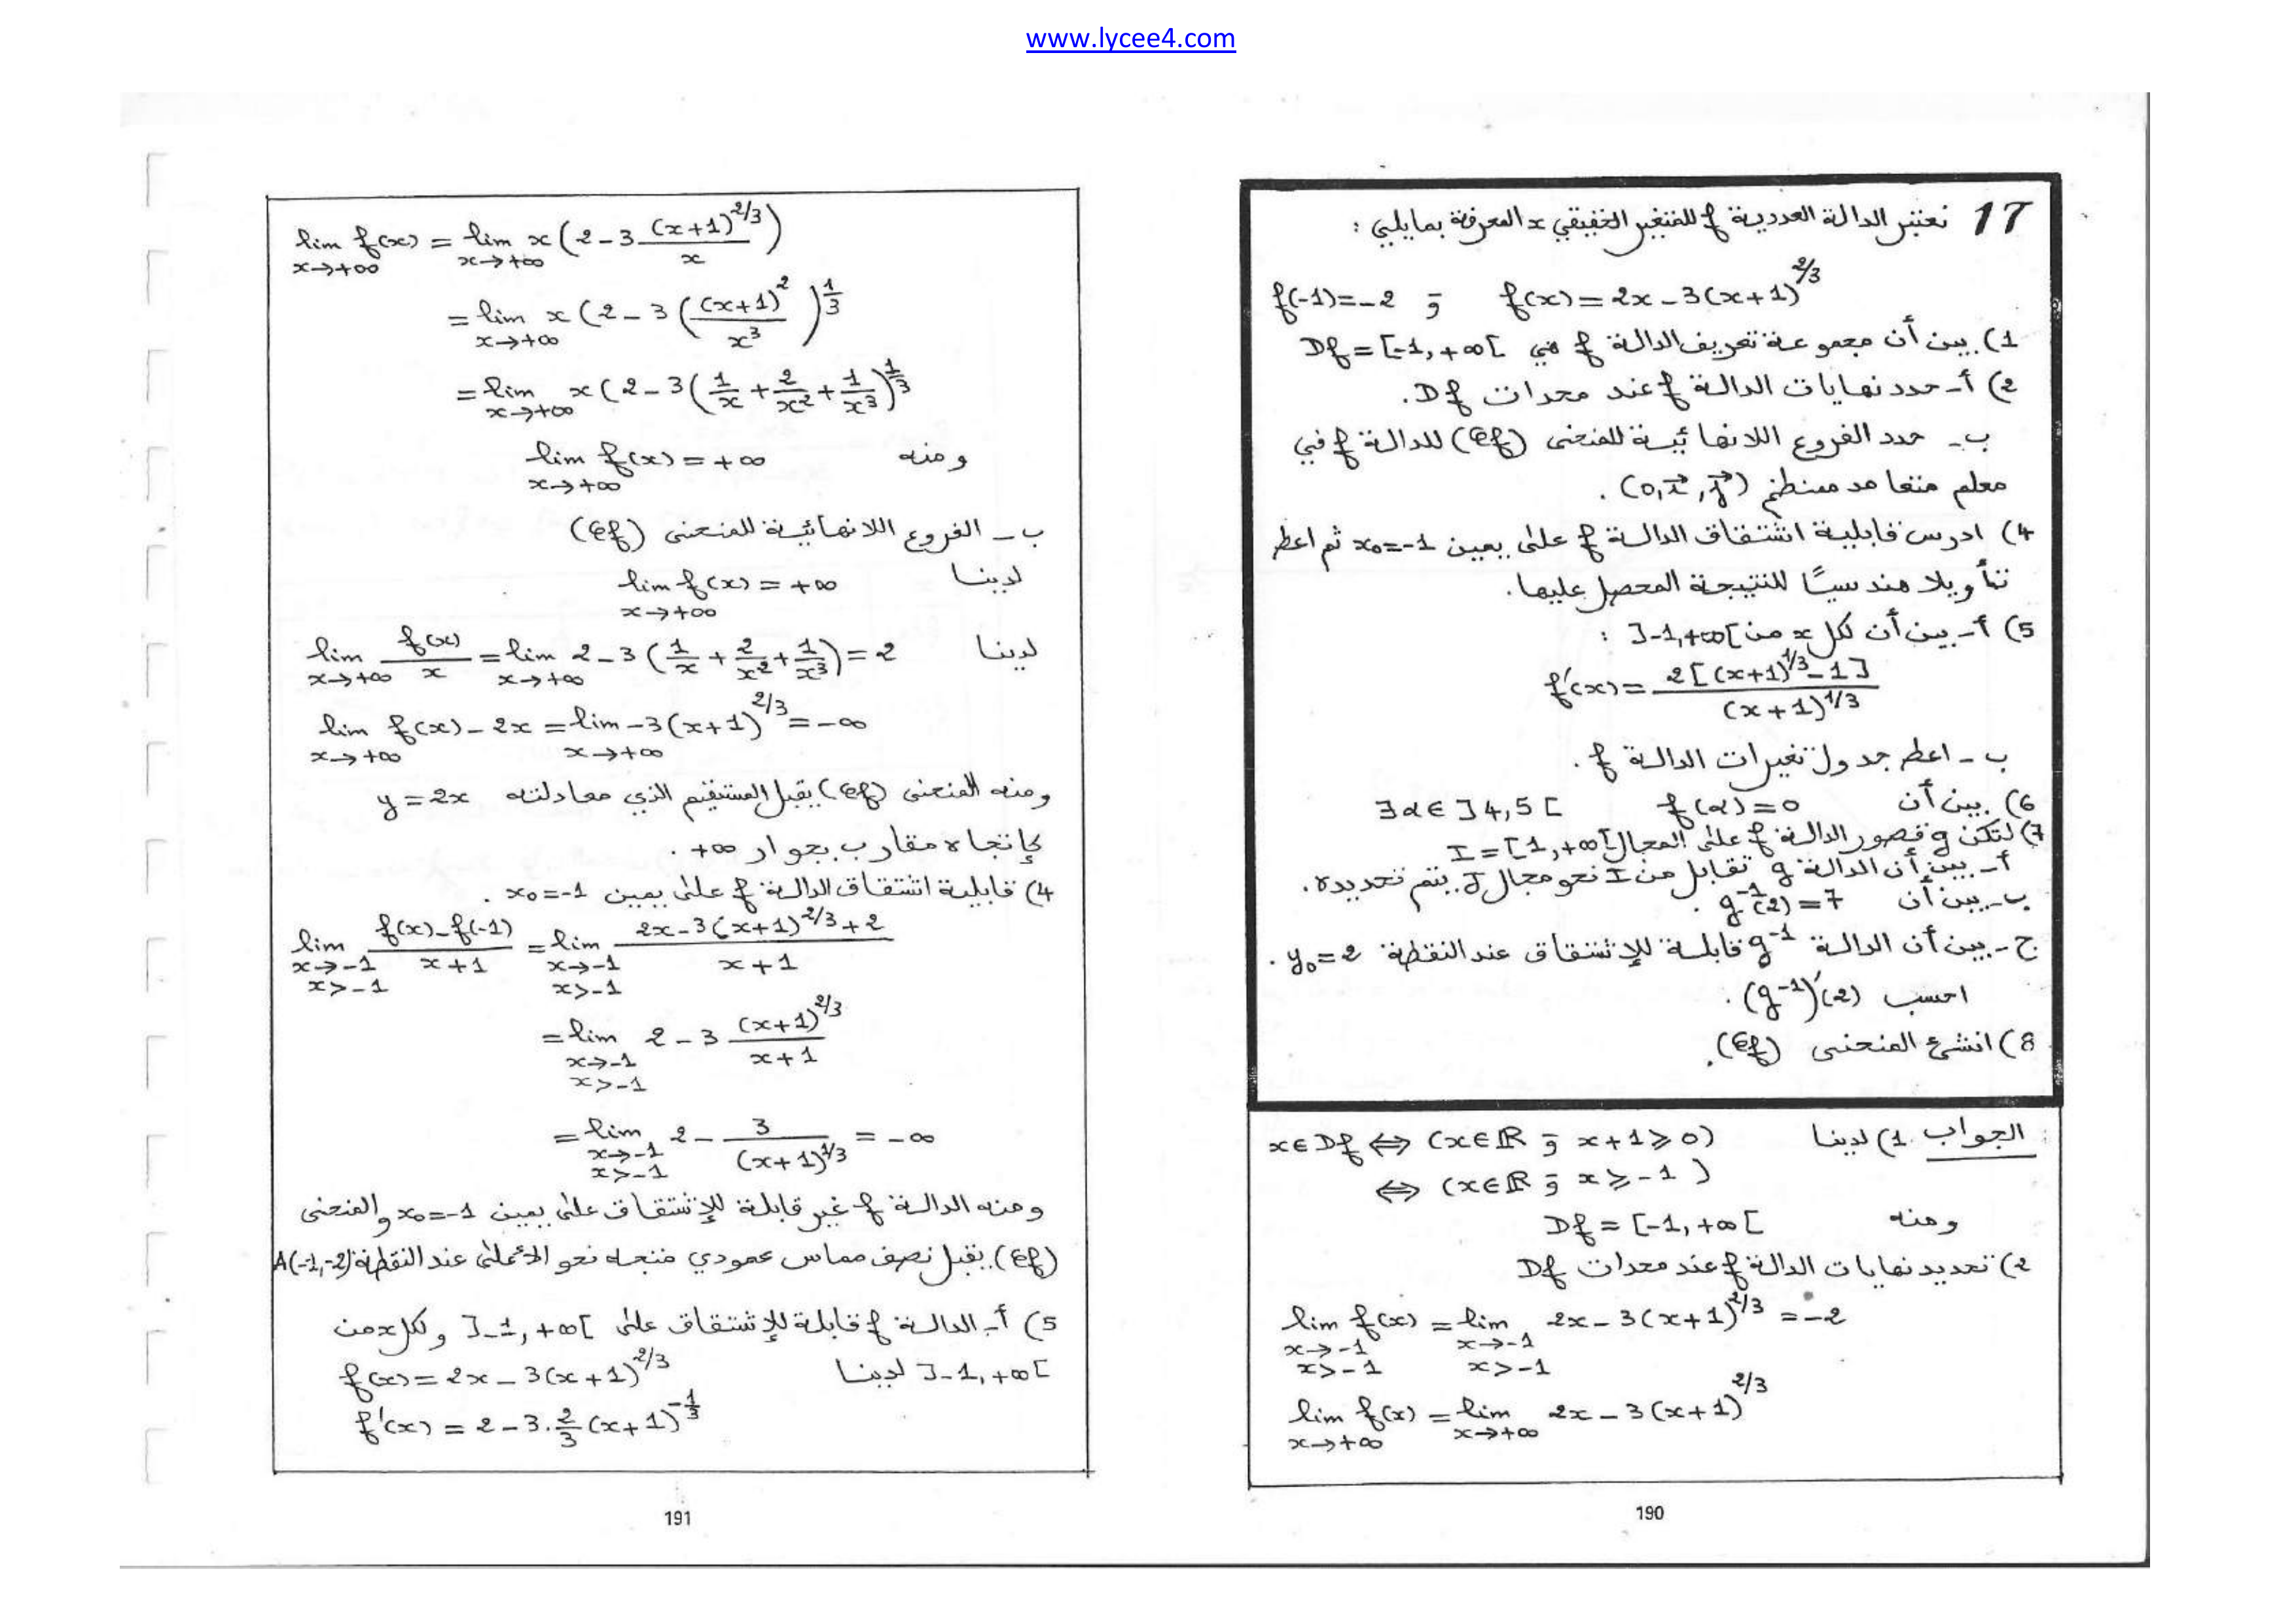 www.lycee4.com
17 نعتبر الدالة العددية f للمتغير الحقيقي x المعرفة بمايلي :
f(-1)=-2 و f(x)=2x-3(x+1)^{2/3}
1) بين أن مجموعة تعريف الدالة f هي Df=[-1,+∞[
2) أ- حدد نهايات الدالة f عند محدات Df.
ب- حدد الفروع اللانهائية للمنحنى (Cf) للدالة f في
معلم متعامد ممنظم (O,i⃗,j⃗) .
4) ادرس قابلية اشتقاق الدالة f على يمين x₀=-1 ثم اعط
تأويلا هندسيًا للنتيجة المحصل عليها.
5) أ- بين أن لكل x من ]-1,+∞[ :
f'(x)=\frac{2[(x+1)^{1/3}-1]}{(x+1)^{1/3}}
ب- اعط جدول تغيرات الدالة f .
6) بين أن f(α)=0 ∃α∈]4,5[
7) لتكن g قصور الدالة f على المجال I=[1,+∞[
أ- بين أن الدالة g تقابل من I نحو مجال J يتم تحديده.
ب- بين أن g⁻¹(2)=7 .
ج- بين أن الدالة g⁻¹ قابلة للإشتقاق عند النقطة y₀=2 .
احسب (g⁻¹)'(2) .
8) انشئ المنحنى (Cf).
الجواب 1) لدينا x∈Df ⟺ (x∈ℝ و x+1⩾0)
⟺ (x∈ℝ و x⩾-1)
ومنه Df=[-1,+∞[
2) تحديد نهايات الدالة f عند محدات Df
lim_{x→-1, x>-1} f(x) = lim_{x→-1, x>-1} 2x-3(x+1)^{2/3} = -2
lim_{x→+∞} f(x) = lim_{x→+∞} 2x-3(x+1)^{2/3}
190
lim_{x→+∞} f(x) = lim_{x→+∞} x(2-3\frac{(x+1)^{2/3}}{x})
= lim_{x→+∞} x(2-3(\frac{(x+1)^2}{x^3})^{1/3}
= lim_{x→+∞} x(2-3(\frac{1}{x}+\frac{2}{x^2}+\frac{1}{x^3})^{1/3}
ومنه lim_{x→+∞} f(x)=+∞
ب- الفروع اللانهائية للمنحنى (Cf)
لدينا lim_{x→+∞} f(x)=+∞
لدينا lim_{x→+∞} \frac{f(x)}{x} = lim_{x→+∞} 2-3(\frac{1}{x}+\frac{2}{x^2}+\frac{1}{x^3})=2
lim_{x→+∞} f(x)-2x = lim_{x→+∞} -3(x+1)^{2/3} = -∞
ومنه المنحنى (Cf) يقبل المستقيم الذي معادلته y=2x
كإتجاه مقارب بجوار +∞ .
4) قابلية اشتقاق الدالة f على يمين x₀=-1 .
lim_{x→-1, x>-1} \frac{f(x)-f(-1)}{x+1} = lim_{x→-1, x>-1} \frac{2x-3(x+1)^{2/3}+2}{x+1}
= lim_{x→-1, x>-1} 2-3\frac{(x+1)^{2/3}}{x+1}
= lim_{x→-1, x>-1} 2-\frac{3}{(x+1)^{1/3}} = -∞
ومنه الدالة f غير قابلة للإشتقاق على يمين x₀=-1 والمنحنى
(Cf) يقبل نصف مماس عمودي متجه نحو الأعلى عند النقطة A(-1,-2)
5) أ- الدالة f قابلة للإشتقاق على ]-1,+∞[ ولكل x من
]-1,+∞[ لدينا f(x)=2x-3(x+1)^{2/3}
f'(x)=2-3.\frac{2}{3}(x+1)^{-\frac{1}{3}}
191